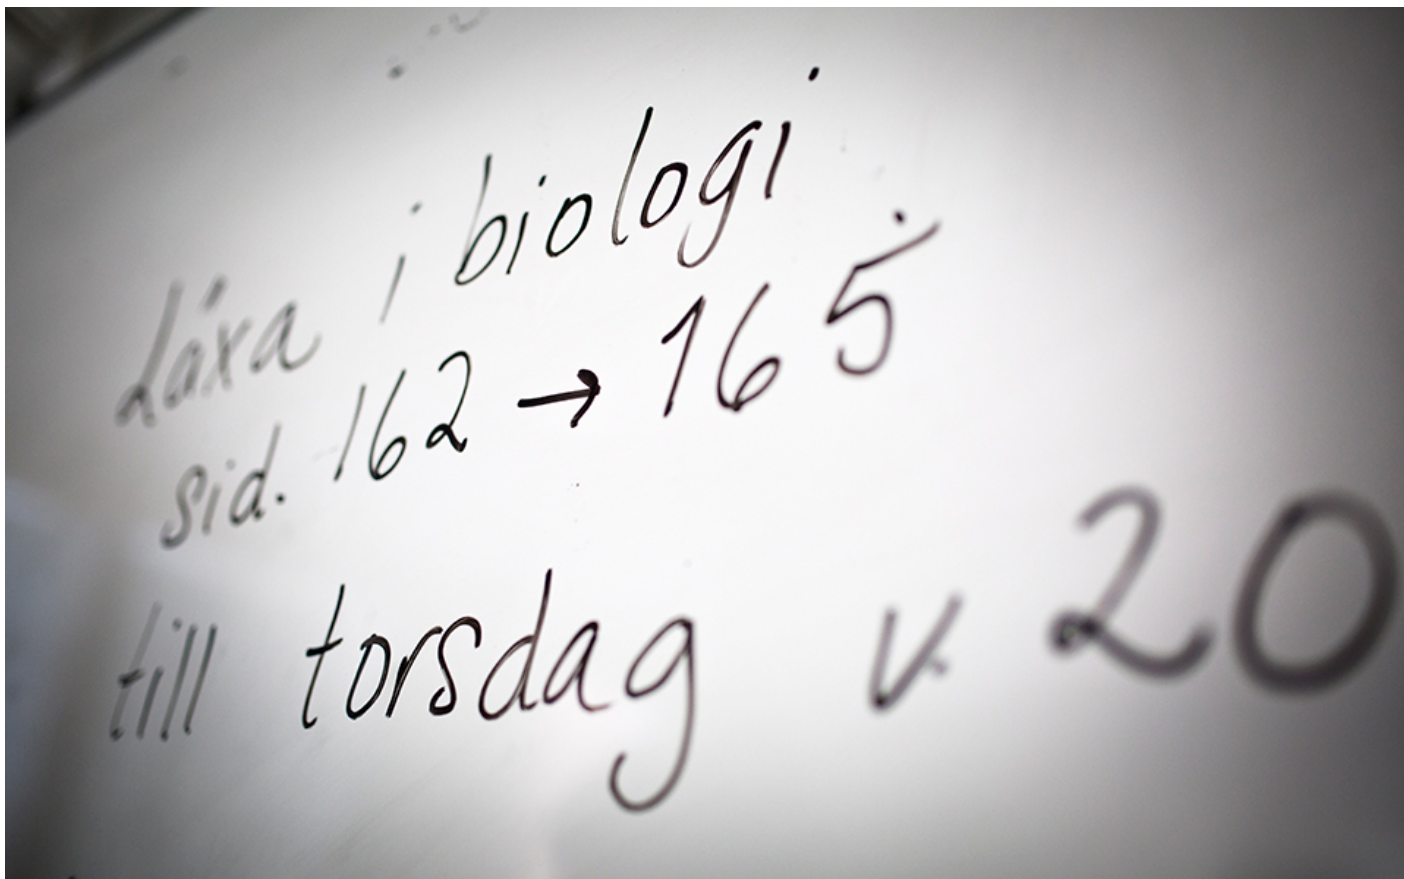 Läxa i biologi
sid. 162 → 165
till torsdag v. 20